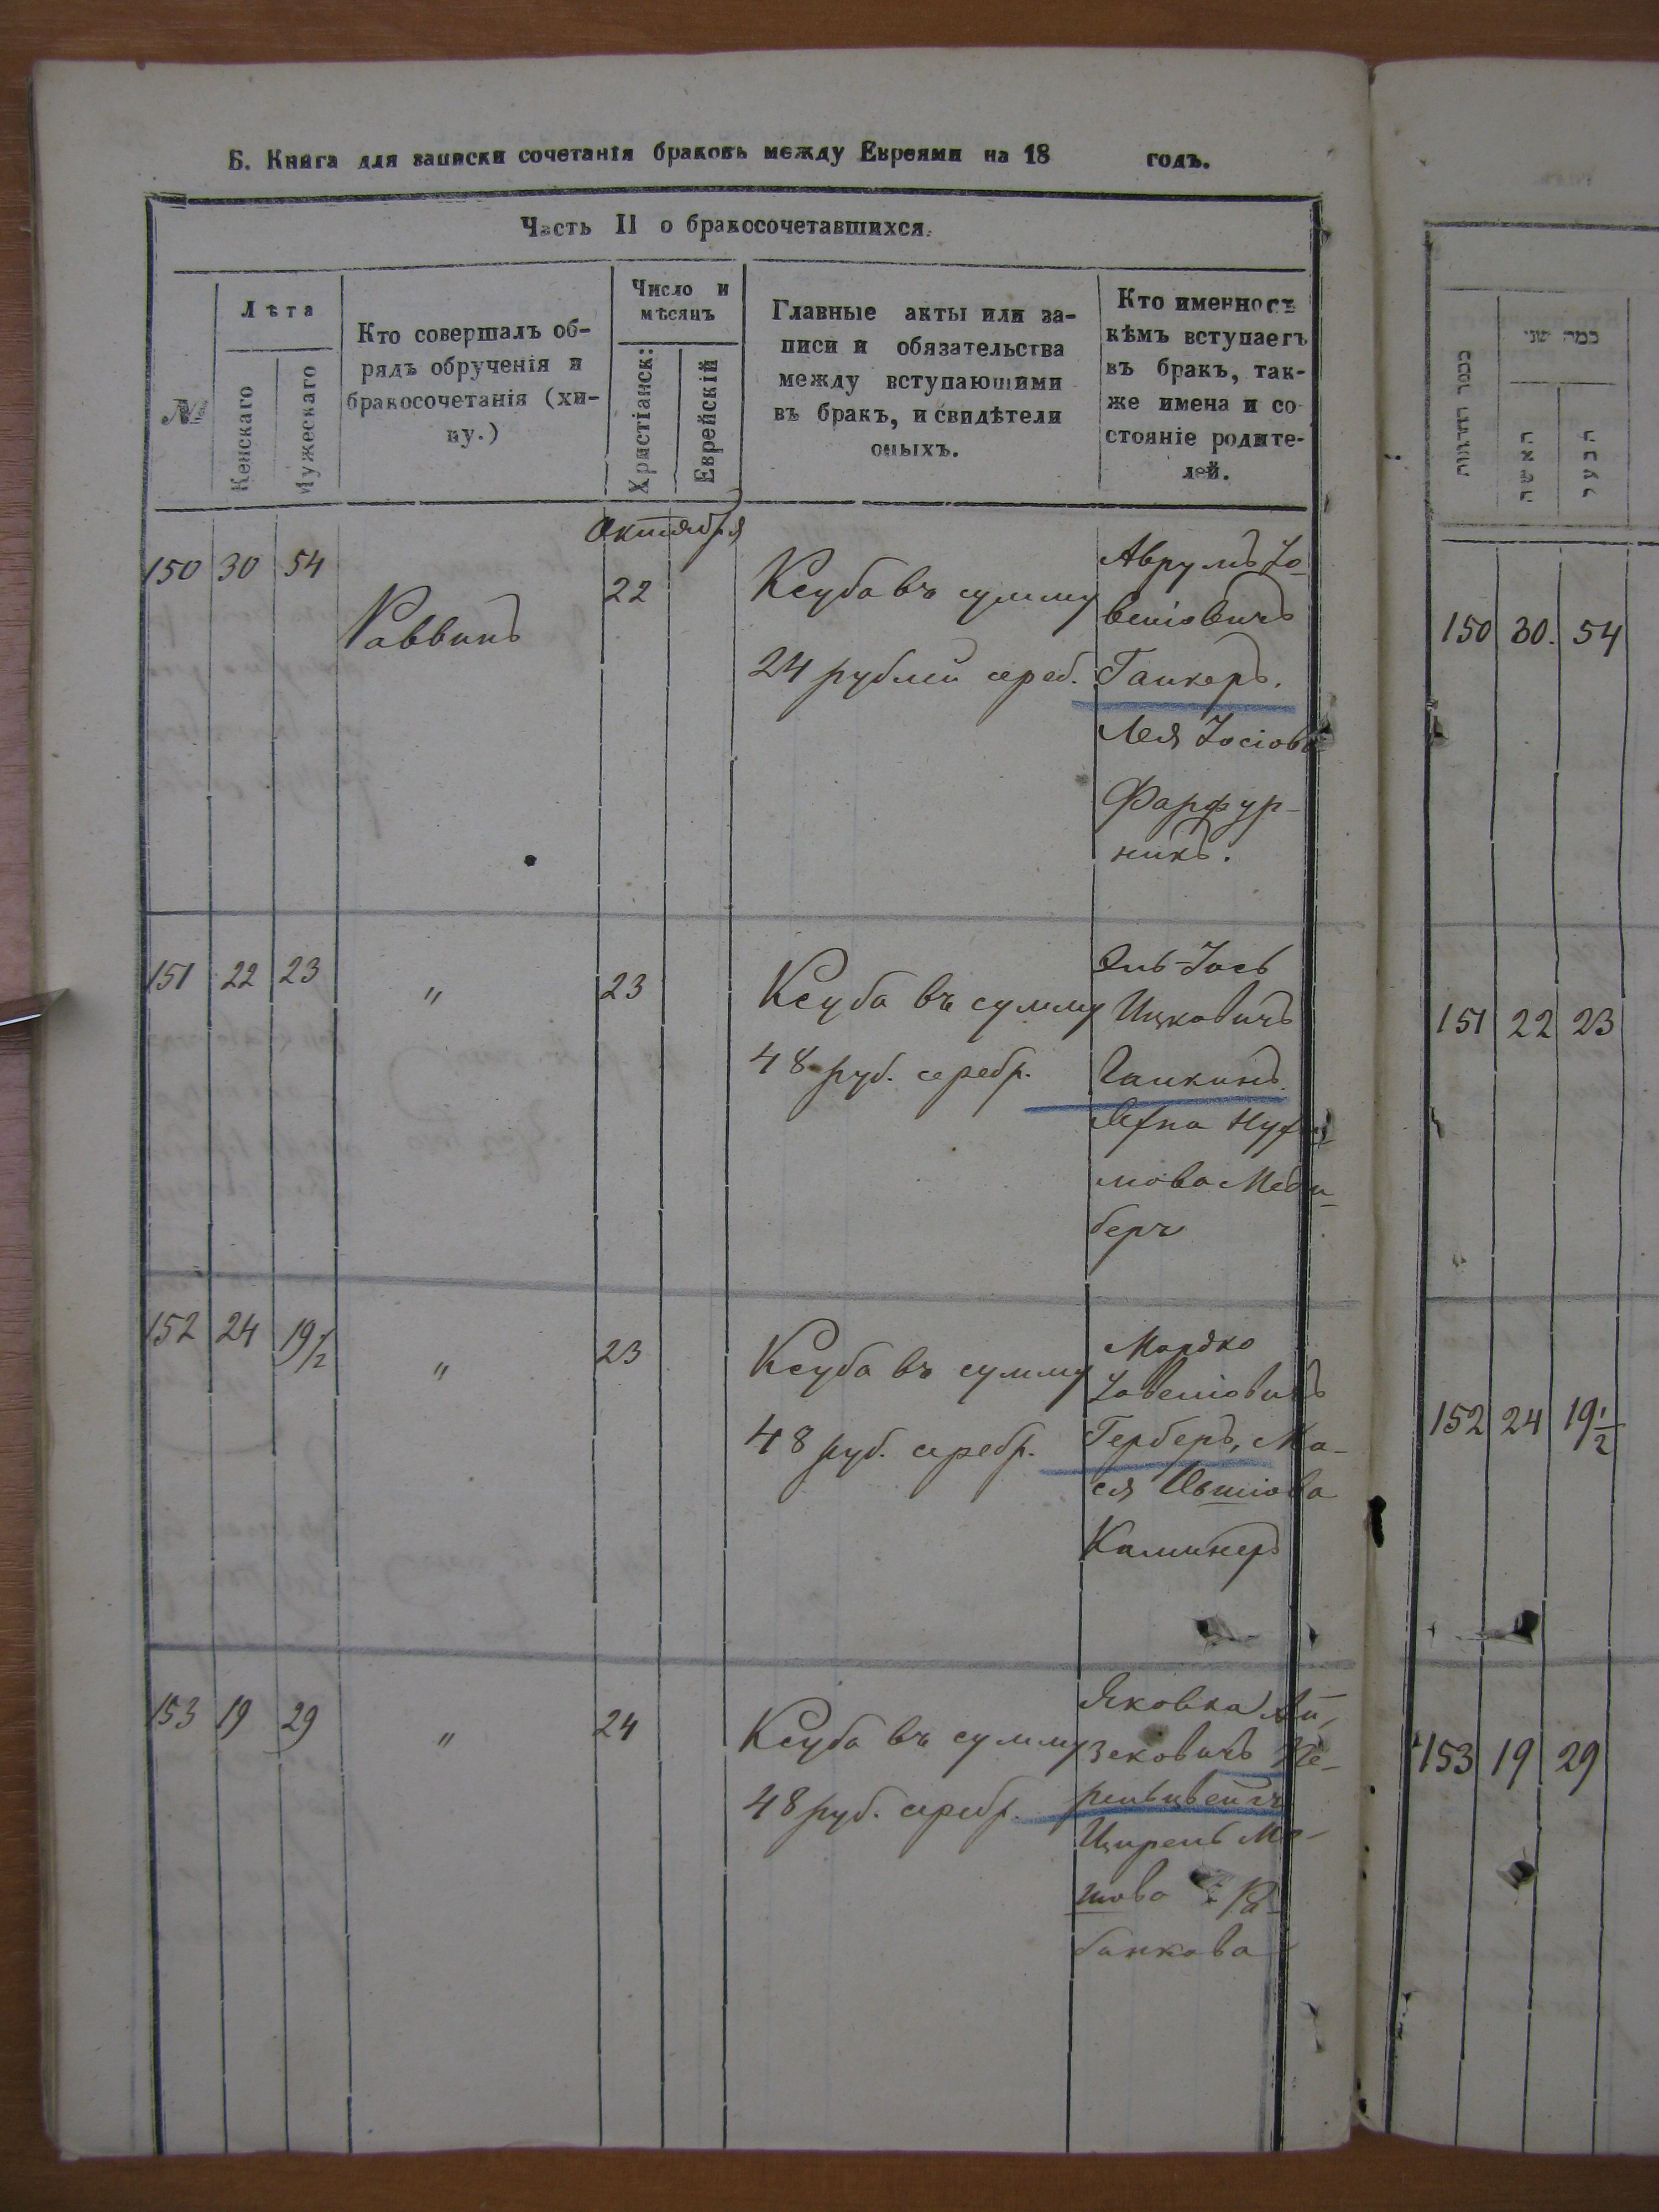 Б. Книга для записки сочетанія браковъ между Евреями на 18 годъ.
Часть II о бракосочетавшихся.
№
Лѣта
Женскаго
Мужескаго
Кто совершалъ об-
рядъ обрученія и
бракосочетанія (хи-
пу.)
Число и
мѣсяцъ
Христіанск:
Еврейскій
Главные акты или за-
писи и обязательства
между вступающими
въ бракъ, и свидѣтели
оныхъ.
Кто именно съ
кѣмъ вступаетъ
въ бракъ, так-
же имена и со
стояніе родите-
лей.
Октября
150 30 54
Раввинъ
22
Ксуба въ сумму
24 рублей сереб.
Аврумъ Іо-
вешіовичъ
Ганкеръ.
Лея Іосіова
Фарфур-
никъ.
151 22 23
"
23
Ксуба въ сумму
48 руб. серебр.
Іось
Ицковичъ
152 24 19 1/2
"
23
Ксуба въ сумму
48 руб. серебр.
Мордко
Іовешіовичъ
Герберъ, Ма-
ся
Каминеръ
153 19 29
"
24
Ксуба въ сумму
48 руб. серебр.
Яковка Ай-
зековичъ
Мо-
шова Ра-
банкова
מספר החתונות
כמה שני
האשה
הבעל
150 30. 54
151 22 23
152 24 19 1/2
153 19 29